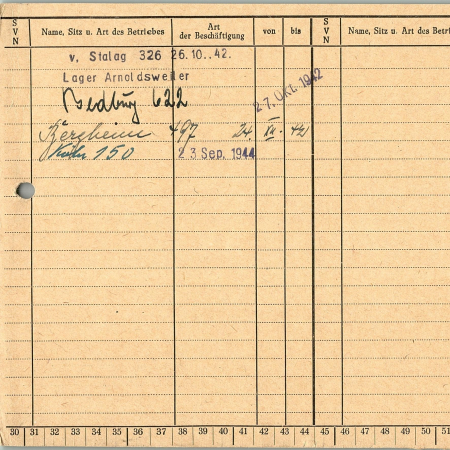 S V N Name, Sitz u. Art des Betriebes Art der Beschäftigung von bis S V N Name, Sitz u. Art des Betri
v. Stalag 326 26.10..42.
Lager Arnoldsweiler
27. Okt. 1942
Bedburg 622
Bergheim 497 24. XII. 42
Köln 150 23 Sep. 1944
30 31 32 33 34 35 36 37 38 39 40 41 42 43 44 45 46 47 48 49 50 51